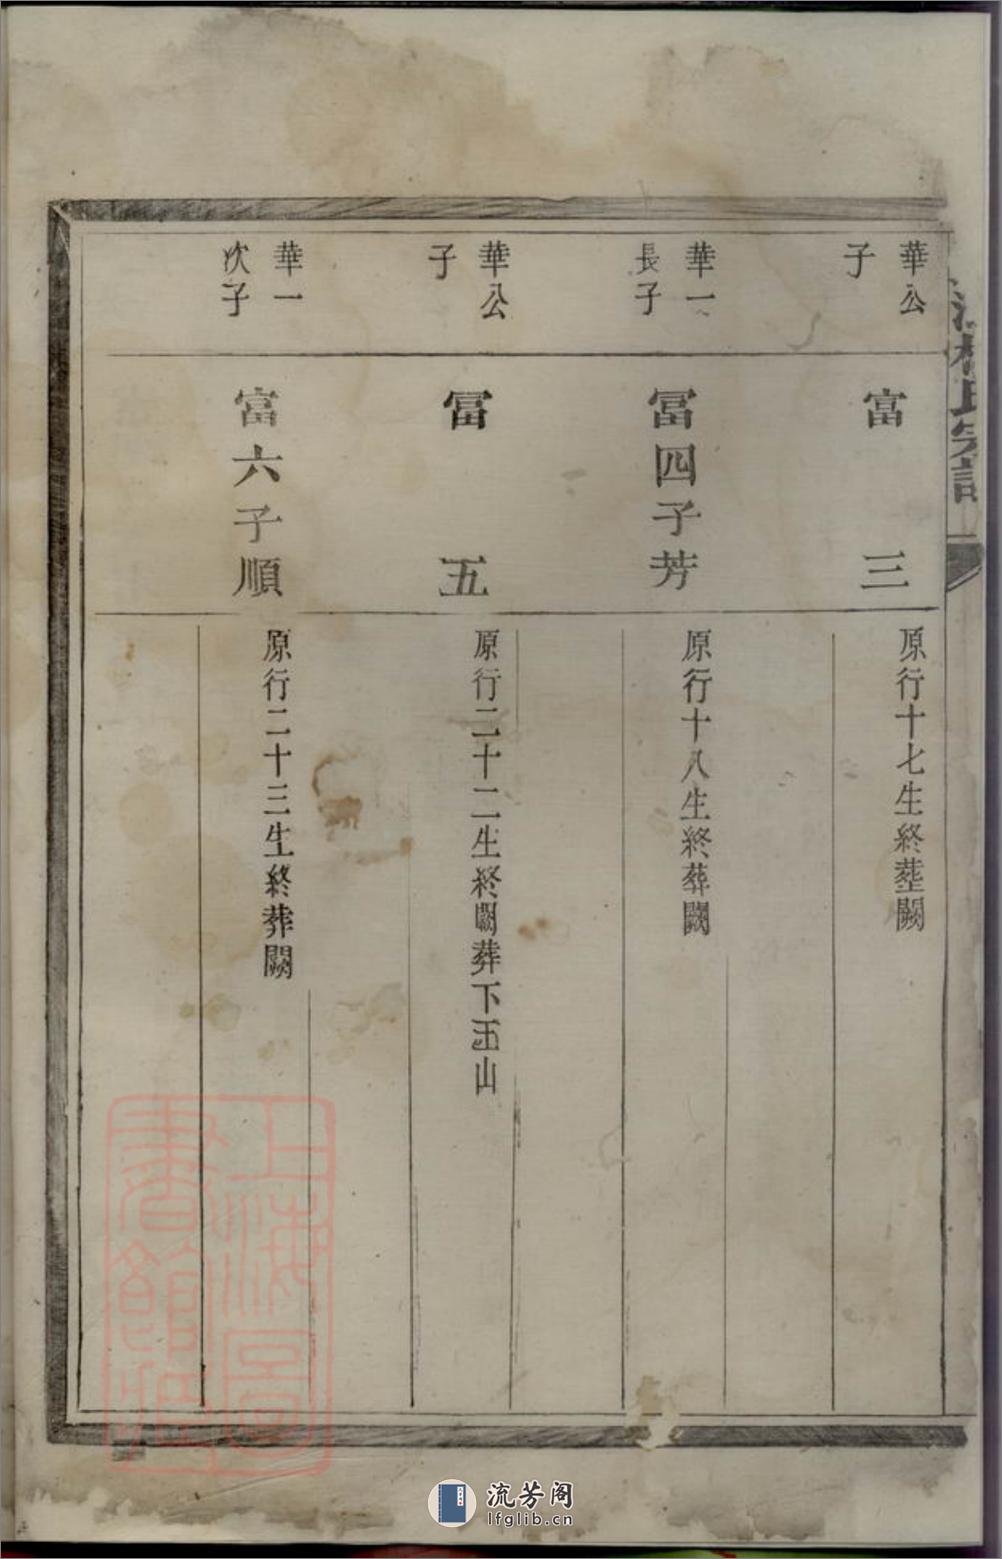 華公
子
富三
原行十七生終塟闕
華一
長子
冨四子芳
原行十八生終葬闕
華公
子
冨五
原行二十二生終闕葬下玉山
華一
次子
富六子順
原行二十三生終葬闕
氏宗譜
上海圖書館藏
流芳阁
lfglib.cn